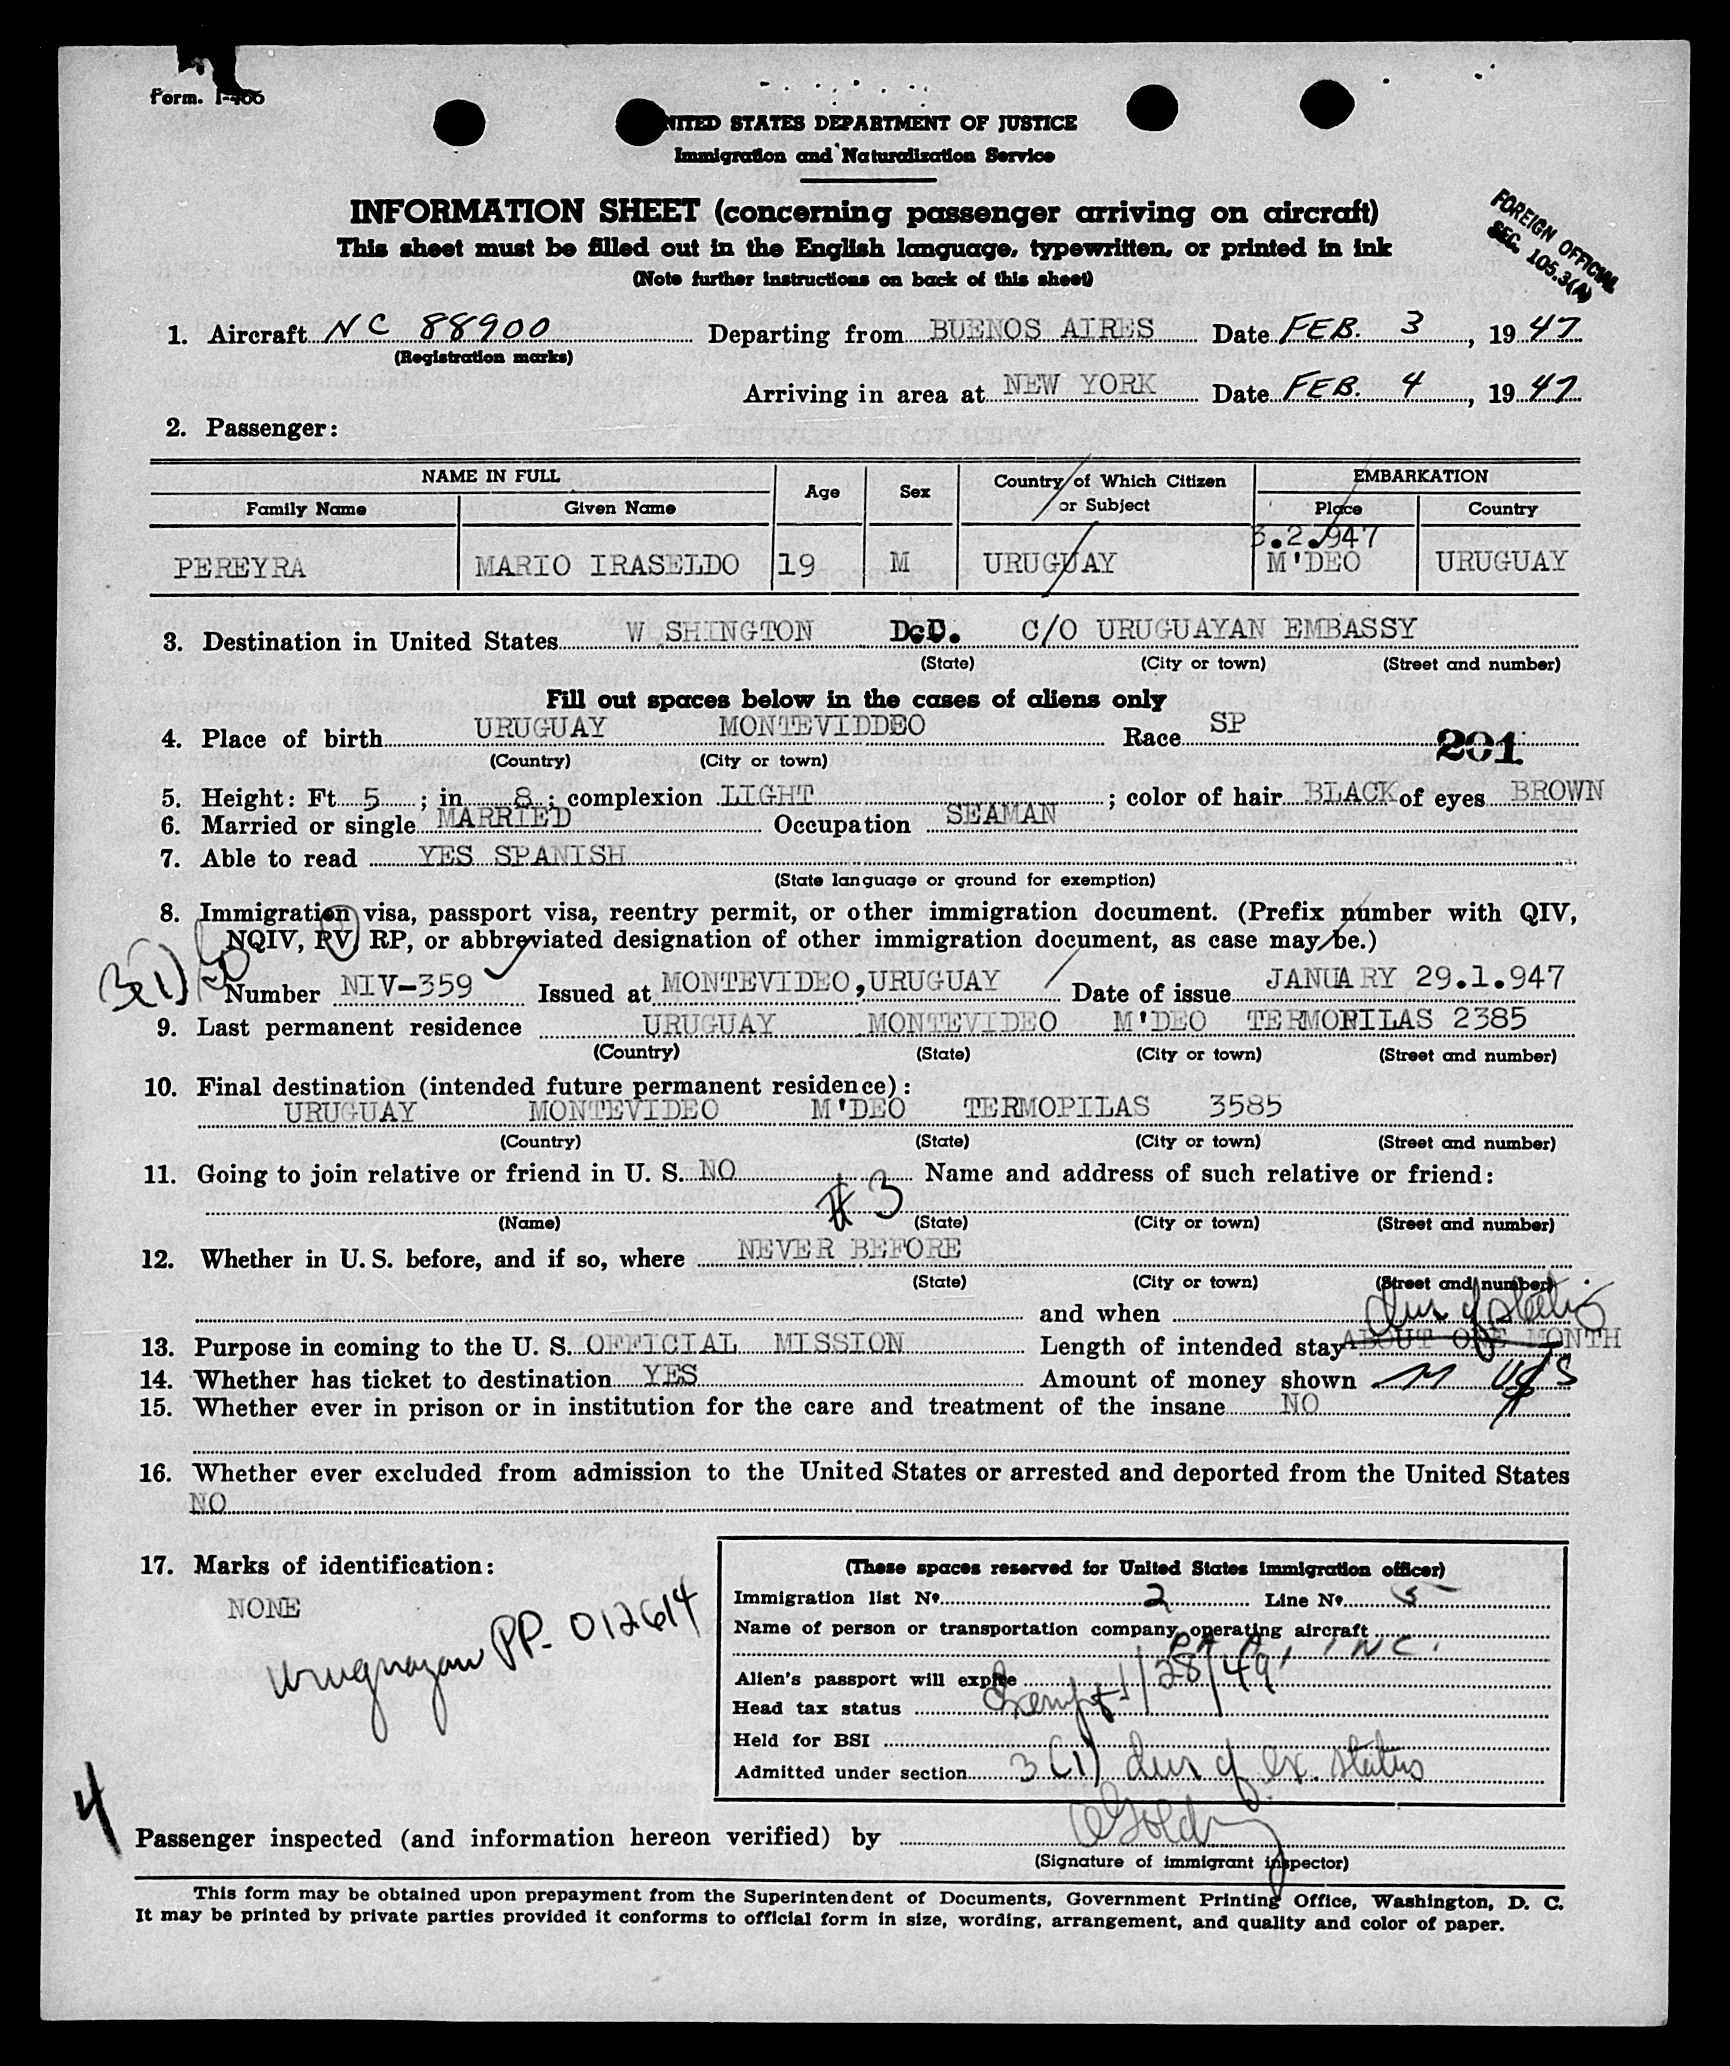 Form. I-466
UNITED STATES DEPARTMENT OF JUSTICE
Immigration and Naturalization Service
INFORMATION SHEET (concerning passenger arriving on aircraft)
This sheet must be filled out in the English language, typewritten, or printed in ink
(Note further instructions on back of this sheet)
FOREIGN OFFICIAL
SEC. 105.3(A)
1. Aircraft NC 88900 Departing from BUENOS AIRES Date FEB. 3, 1947
(Registration marks)
Arriving in area at NEW YORK Date FEB. 4, 1947
2. Passenger:
NAME IN FULL Age Sex Country of Which Citizen or Subject EMBARKATION
Family Name Given Name Place Country
3.2.947
PEREYRA MARIO IRASELDO 19 M URUGUAY M'DEO URUGUAY
3. Destination in United States W SHINGTON D.C. C/O URUGUAYAN EMBASSY
(State) (City or town) (Street and number)
Fill out spaces below in the cases of aliens only
4. Place of birth URUGUAY MONTEVIDDEO Race SP
(Country) (City or town)
201
5. Height: Ft. 5; in. 8; complexion LIGHT; color of hair BLACK of eyes BROWN
6. Married or single MARRIED Occupation SEAMAN
7. Able to read YES SPANISH
(State language or ground for exemption)
8. Immigration visa, passport visa, reentry permit, or other immigration document. (Prefix number with QIV,
NQIV, RV, RP, or abbreviated designation of other immigration document, as case may be.)
3(1)
Number NIV-359 Issued at MONTEVIDEO, URUGUAY Date of issue JANUARY 29.1.947
9. Last permanent residence URUGUAY MONTEVIDEO M'DEO TERMOPILAS 2385
(Country) (State) (City or town) (Street and number)
10. Final destination (intended future permanent residence):
URUGUAY MONTEVIDEO M'DEO TERMOPILAS 3585
(Country) (State) (City or town) (Street and number)
11. Going to join relative or friend in U. S. NO Name and address of such relative or friend:
# 3
(Name) (State) (City or town) (Street and number)
12. Whether in U. S. before, and if so, where NEVER BEFORE
(State) (City or town) (Street and number)
and when
dur of status
13. Purpose in coming to the U. S. OFFICIAL MISSION Length of intended stay ABOUT ONE MONTH
14. Whether has ticket to destination YES Amount of money shown
15. Whether ever in prison or in institution for the care and treatment of the insane NO
16. Whether ever excluded from admission to the United States or arrested and deported from the United States
NO
17. Marks of identification:
NONE
Uruguayan PP- 012614
(These spaces reserved for United States immigration officer)
Immigration list No. 2 Line No. 5
Name of person or transportation company operating aircraft
P A A, INC.
Alien's passport will expire 1/28/49
Head tax status Exempt
Held for BSI
Admitted under section 3(1) dur of ex. status
4
Passenger inspected (and information hereon verified) by
(Signature of immigrant inspector)
This form may be obtained upon prepayment from the Superintendent of Documents, Government Printing Office, Washington, D. C.
It may be printed by private parties provided it conforms to official form in size, wording, arrangement, and quality and color of paper.